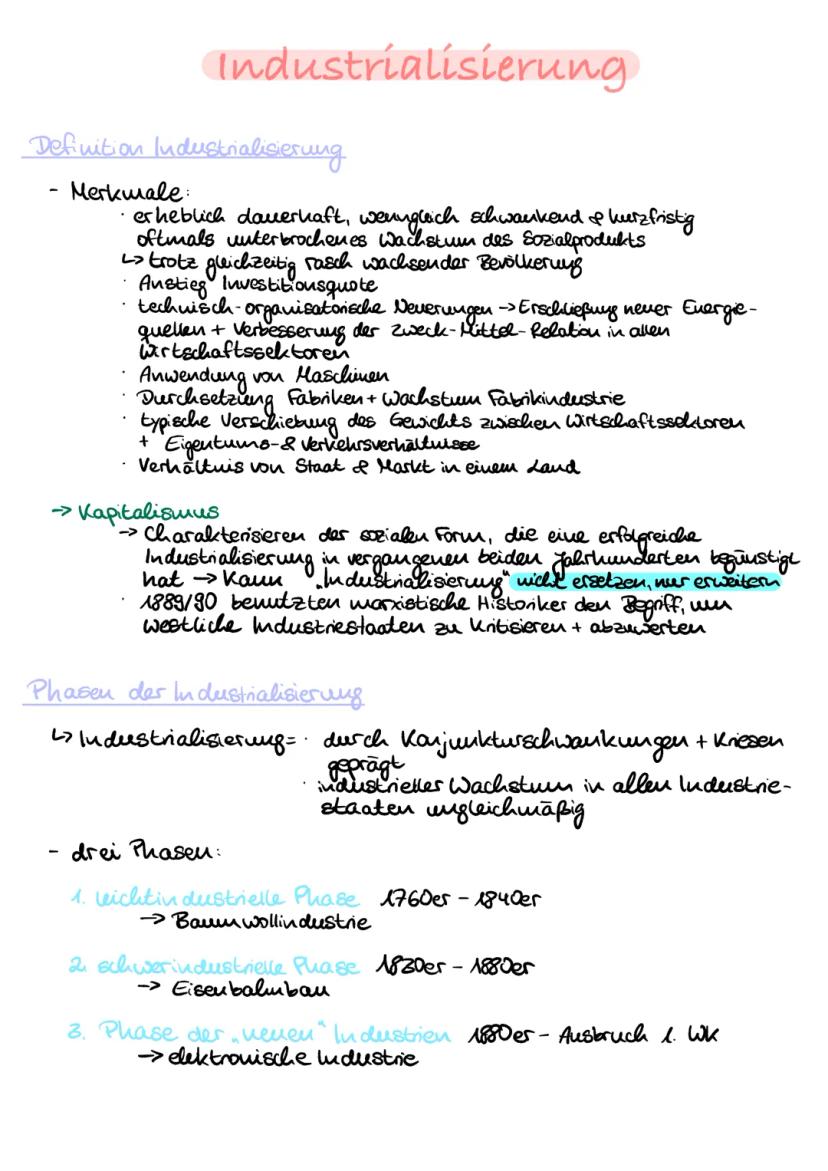 Industrialisierung
Definition Industrialisierung
- Merkmale:
· erheblich dauerhaft, wenngleich schwankend & kurzfristig
oftmals unterbrochenes Wachstum des Sozialprodukts
↳ trotz gleichzeitig rasch wachsender Bevölkerung
· Anstieg Investitionsquote
· technisch-organisatorische Neuerungen → Erschließung neuer Energie-
quellen + Verbesserung der Zweck-Mittel-Relation in allen
Wirtschaftssektoren
· Anwendung von Maschinen
· Durchsetzung Fabriken + Wachstum Fabrikindustrie
· typische Verschiebung des Gewichts zwischen Wirtschaftssektoren
+ Eigentums- & Verkehrsverhältnisse
· Verhältnis von Staat & Markt in einem Land
→ Kapitalismus
→ Charakterisieren der sozialen Form, die eine erfolgreiche
Industrialisierung in vergangenen beiden Jahrhunderten begünstigt
hat → Kann „Industrialisierung“ nicht ersetzen, nur erweitern
· 1889/90 benutzten marxistische Historiker den Begriff, um
westliche Industriestaaten zu kritisieren + abzuwerten
Phasen der Industrialisierung
↳ Industrialisierung = · durch Konjunkturschwankungen + Kriesen
geprägt
· industrieller Wachstum in allen Industrie-
staaten ungleichmäßig
- drei Phasen:
1. leichtindustrielle Phase 1760er - 1840er
→ Baumwollindustrie
2. schwerindustrielle Phase 1830er - 1880er
→ Eisenbahnbau
3. Phase der „neuen“ Industrien 1880er - Ausbruch 1. WK
→ elektronische Industrie